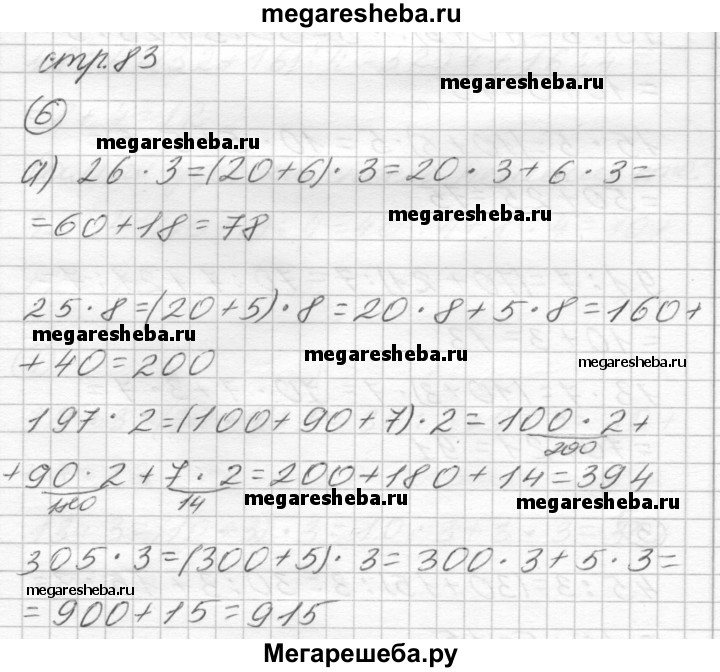 megaresheba.ru
стр. 83
megaresheba.ru
6
megaresheba.ru
а) 26 · 3 = (20 + 6) · 3 = 20 · 3 + 6 · 3 =
megaresheba.ru
= 60 + 18 = 78
25 · 8 = (20 + 5) · 8 = 20 · 8 + 5 · 8 = 160 +
megaresheba.ru
megaresheba.ru
megaresheba.ru
+ 40 = 200
197 · 2 = (100 + 90 + 7) · 2 = 100 · 2 +
200
+ 90 · 2 + 7 · 2 = 200 + 180 + 14 = 394
180 14
megaresheba.ru
megaresheba.ru
305 · 3 = (300 + 5) · 3 = 300 · 3 + 5 · 3 =
megaresheba.ru
= 900 + 15 = 915
Мегарешеба.ру